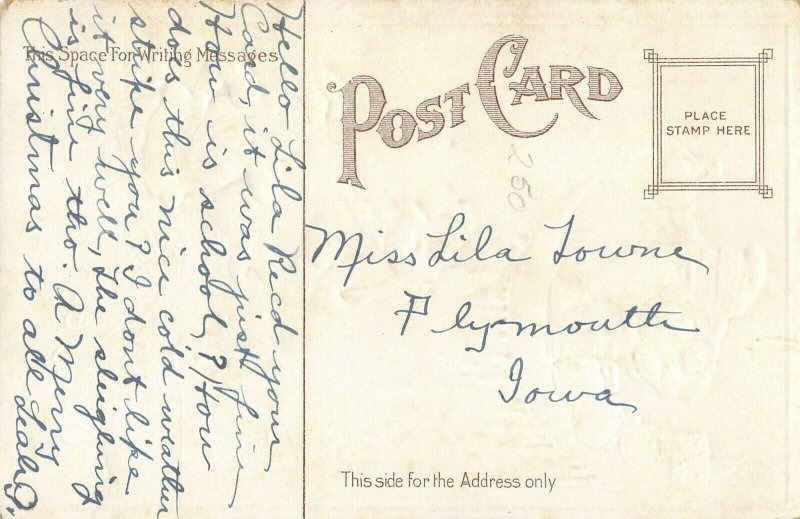 This Space For Writing Messages
POST CARD
PLACE
STAMP HERE
250
Hello Lila Recd your
Card, it was just fine
How is school? How
does this nice cold weather
strike you? I dont like
it very well, the sleighing
is fine tho. A Merry
Christmas to all Leah P.
Miss Lila Towne
Plymouth
Iowa
This side for the Address only